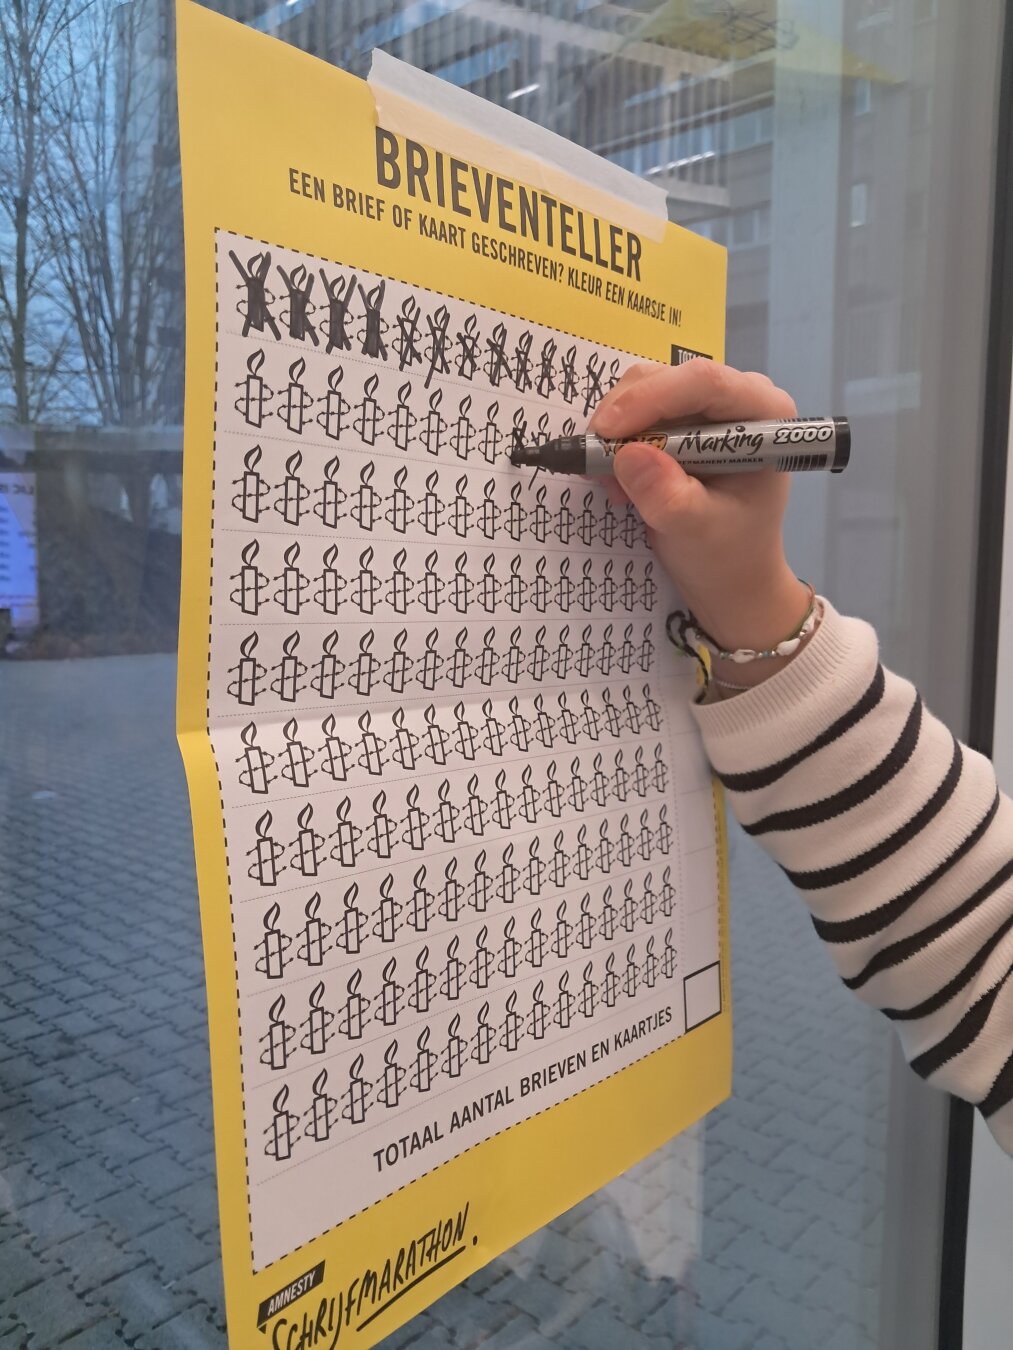 BRIEVENTELLER
EEN BRIEF OF KAART GESCHREVEN? KLEUR EEN KAARSJE IN!
Marking 2000
PERMANENT MARKER
TOTAAL AANTAL BRIEVEN EN KAARTJES
AMNESTY
SCHRIJFMARATHON.